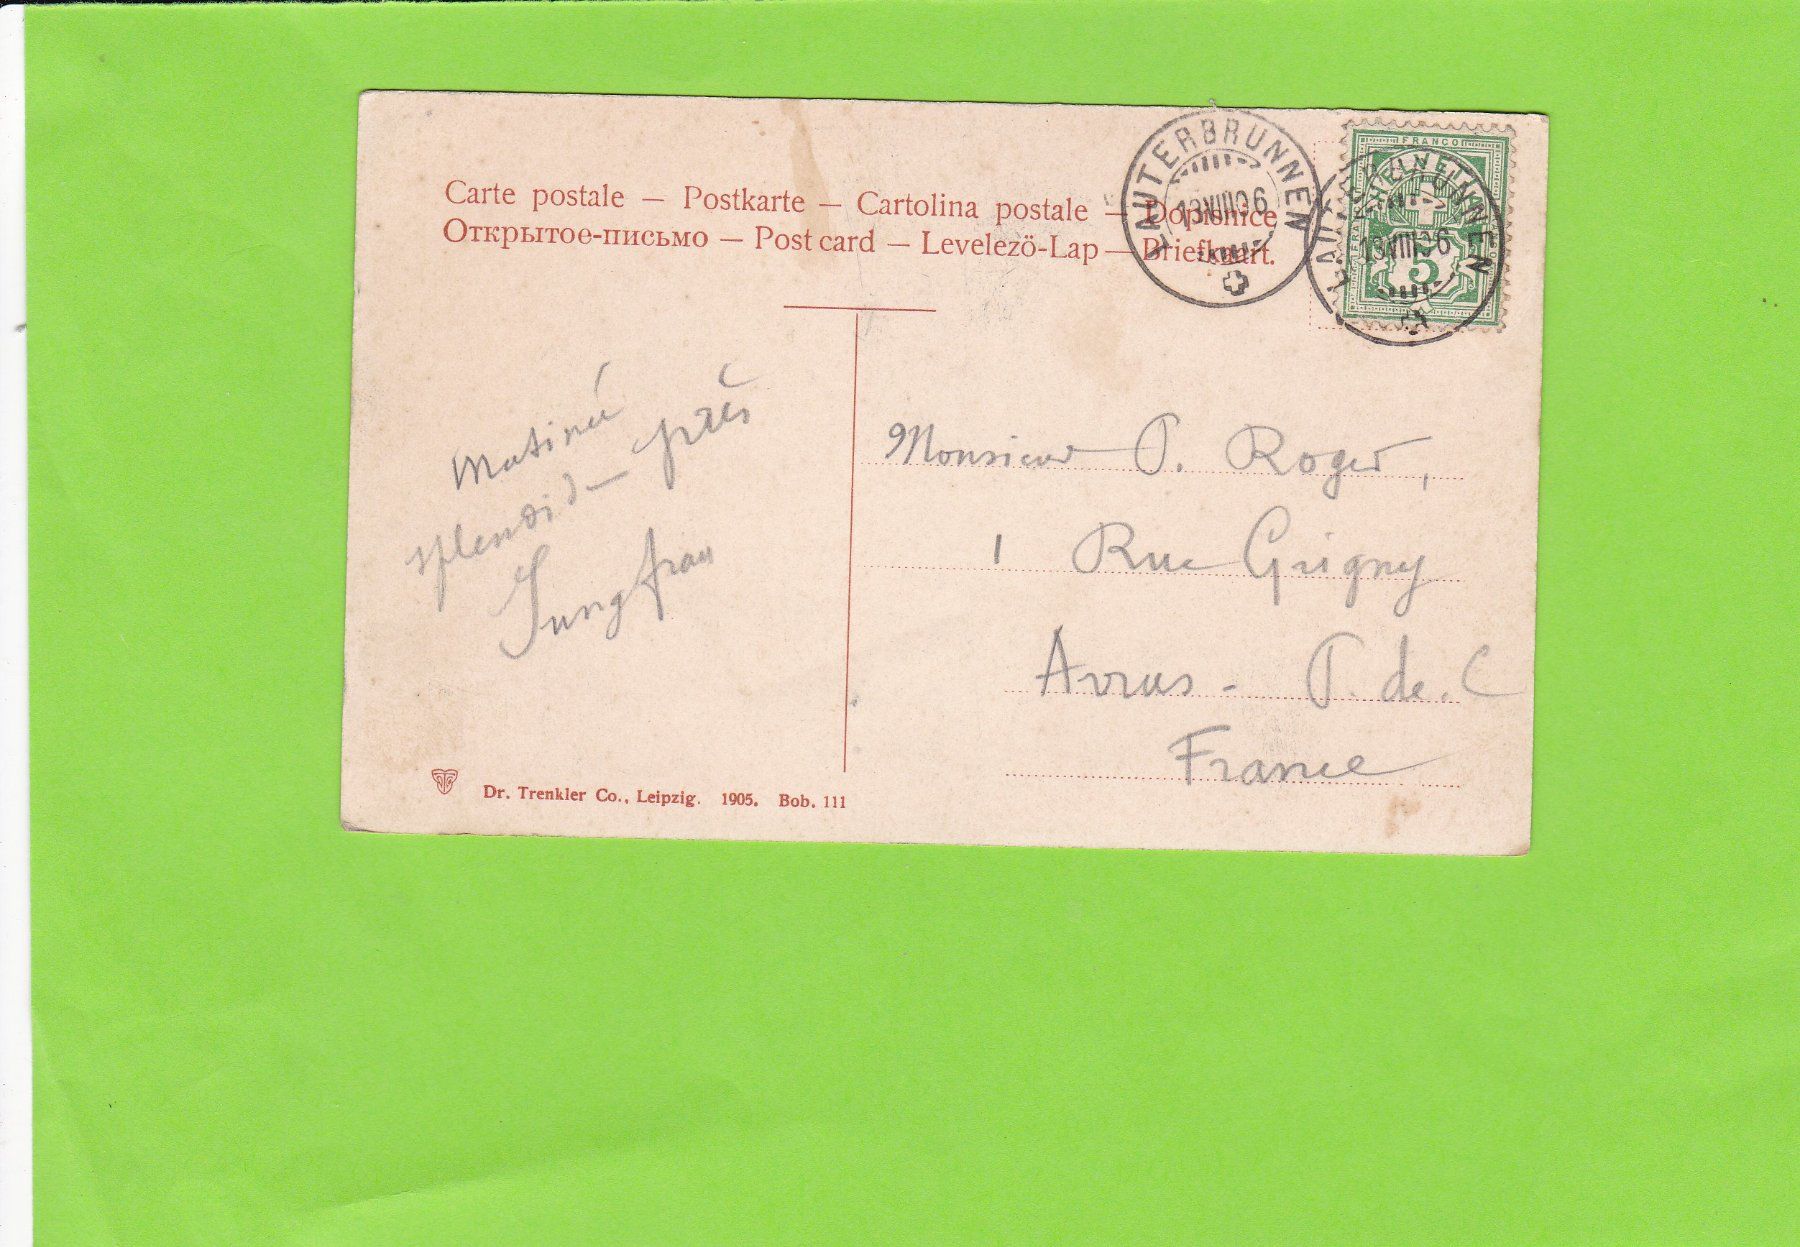 Carte postale — Postkarte — Cartolina postale — Dopisnice
Открытое-письмо — Post card — Levelező-Lap — Briefkaart.
LAUTERBRUNNEN
13 VIII 06
FRANCO
HELVETIA
FRANCO
5
LAUTERBRUNNEN
13 VIII 06
Matinée
splendide près
Jungfrau
Monsieur P. Roger,
1 Rue Grigny
Arras - P. de. C
France
Dr. Trenkler Co., Leipzig. 1905. Bob. 111